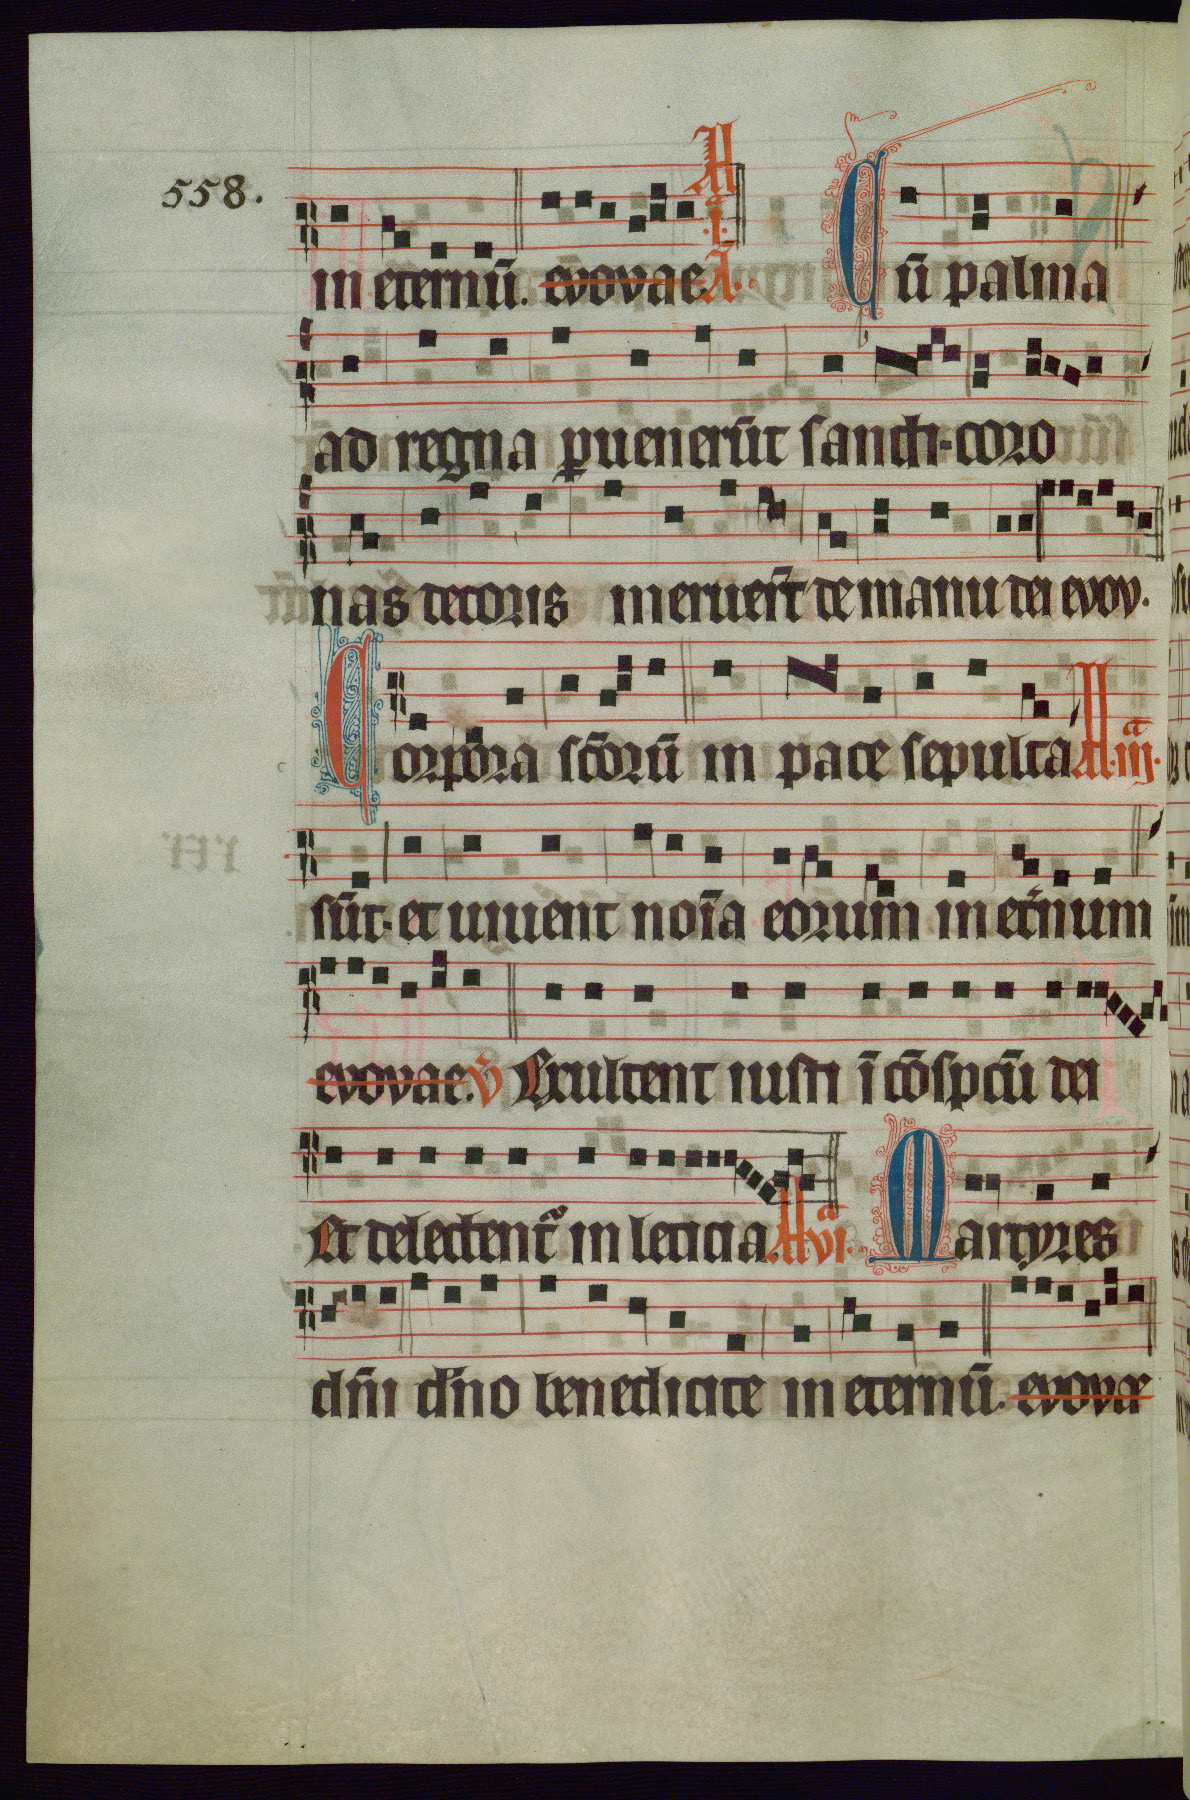 558.
in eternū. evovae. A. i. A. Cū palma
ad regna ꝑuenerūt sancti· coro
nas decoris meruer̄t de manu dei evov.
Corpora sc̄orū in pace sepulta A. iij. a
sūt· et uiuent noīa eorum in et̄num
evovae. v̄ Exultent iusti ī cōspcū dei
Et delectent᷑ in leticia. A. vi. a Martyres
dn̄i dn̄o benedicite in eternū. evovae